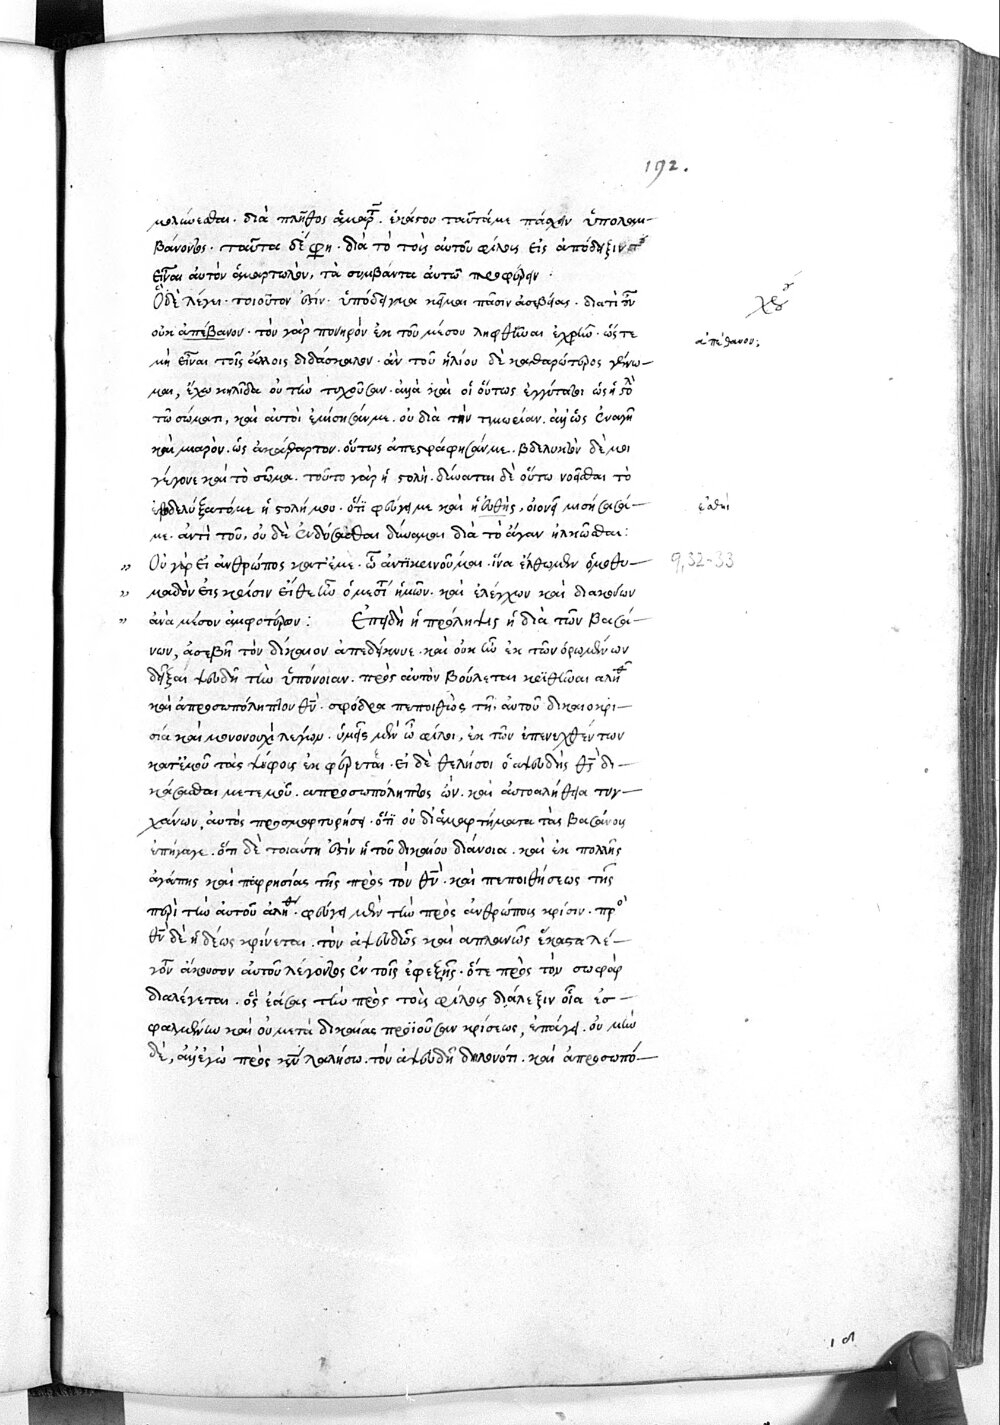 192.
μολύνεσθαι. διὰ πλῆθος ἁμαρτ. ἑκάστου ταῦτά με πάσχειν ὑπολαμ-
βάνοντος. ταῦτα δέ φη. διὰ τὸ τοὺς αὐτοῦ φίλους εἰς ἀπόδειξιν τοῦ
εἶναι αὐτὸν ἁμαρτωλὸν, τὰ συμβάντα αὐτῷ προφέρειν.
Ὃ δὲ λέγει. τοιοῦτον ἐστίν. ὑπόδειγμα κεῖμαι πᾶσιν ἀσεβείας. διατί οὖν
χου
οὐκ ἀπέβανον. τὸν γὰρ πονηρὸν ἐκ τοῦ μέσου ληφθῆναι ἐχρῆν. ὥστε
ἀπέθανον;
μὴ εἶναι τοῖς ἄλλοις διδάσκαλον. ἀν τοῦ ἡλίου δὲ καθαρώτερος γένω-
μαι, ἔχω κηλῖδα οὐ τὴν τυχοῦσαν. ἀλλὰ καὶ οἱ οὕτως ἐγγύτατοι ὡς ἡ στολὴ
τῷ σώματι, καὶ αὐτοὶ ἐμίσησάν με. οὐ διὰ τὴν τιμωρίαν. ἀλλ' ὡς ἐναγῆ
καὶ μιαρὸν. ὡς ἀκάθαρτον. οὕτως ἀπεστράφησάν με. βδελυκτὸν δέ μοι
γέγονε καὶ τὸ σῶμα. τοῦτο γὰρ ἡ στολή. δύναται δὲ οὕτω νοεῖσθαι τὸ
ἐβδελύξατό με ἡ στολή μου. ὅτι φεύγει με καὶ ἡ ἐσθὴς, οἱονεὶ μισήσασά-
ἐσθὴς
με. ἀντὶ τοῦ, οὐδὲ ἐνδύσασθαι δύναμαι διὰ τὸ ἄγαν ἡλκῶσθαι:
„ Οὐ γὰρ εἶ ἀνθρωπος κατ' ἐμὲ. ᾧ ἀντικρινοῦμαι. ἵνα ἔλθωμεν ὁμοθυ-
9,32-33
„ μαδὸν εἰς κρίσιν εἴθε ἦν ὁ μεσίτης ἡμῶν. καὶ ἐλέγχων καὶ διακούων
„ ἀνὰ μέσον ἀμφοτέρων: Ἐπειδὴ ἡ πρόληψις ἡ διὰ τῶν βασά-
νων, ἀσεβῆ τὸν δίκαιον ἀπεδείκνυε. καὶ οὐκ ἦν ἐκ τῶν ὁρωμένων
δεῖξαι ψευδῆ τὴν ὑπόνοιαν. πρὸς αὐτὸν βούλεται κριθῆναι ἀληθῆ
καὶ ἀπροσωπόληπτον θν. σφόδρα πεποιθὼς τῇ αὐτοῦ δικαιοκρι-
σίᾳ καὶ μονονουχὶ λέγων. ὑμεῖς μὲν ὦ φίλοι, ἐκ τῶν ἐπενεχθέντων
κατ' ἐμοῦ τὰς ψήφους ἐκφέρετε. εἰ δὲ θελήσοι ὁ ἀψευδὴς θς δι-
κάσασθαι μετ' ἐμοῦ. ἀπροσωπόληπτος ὢν. καὶ αὐτοαλήθεια τυγ-
χάνων, αὐτὸς προσμαρτυρήσει. ὅτι οὐ δι' ἁμαρτήματα τὰς βασάνους
ἐπήγαγε. ὅτι δὲ τοιαύτη ἐστὶν ἡ τοῦ δικαίου διάνοια. καὶ ἐκ πολλῆς
ἀγάπης καὶ παρρησίας τῆς πρὸς τὸν θν. καὶ πεποιθήσεως τῆς
περὶ τὴν αὐτοῦ ἀληθ. φεύγει μὲν τὴν πρὸς ἀνθρώπους κρίσιν. πρὸς
θν δὲ ἡδέως κρίνεται. τὸν ἀψευδῶς καὶ ἀπλανῶς ἕκαστα λέ-
γον ἄκουσον αὐτοῦ λέγοντος ἐν τοῖς ἐφεξῆς. ὅτε πρὸς τὸν σωφὰρ
διαλέγεται. ὃς ἐάσας τὴν πρὸς τοὺς φίλους διάλεξιν οἷα ἐσ-
φαλμένην καὶ οὐ μετὰ δικαίας προϊοῦσαν κρίσεως, ἐπάγει. οὐ μὴν
δὲ, ἀλλ' ἐγὼ πρὸς κν λαλήσω. τὸν ἀψευδῆ δηλονότι. καὶ ἀπροσωπό-